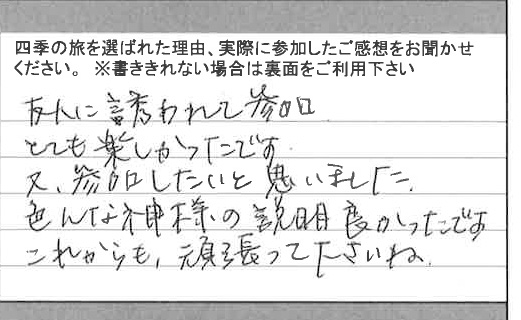 四季の旅を選ばれた理由、実際に参加したご感想をお聞かせ
ください。 ※書ききれない場合は裏面をご利用下さい
友人に誘われて参加
とても楽しかったです
又、参加したいと思いました。
色んな神様の説明良かったです
これからも、頑張って下さいね.